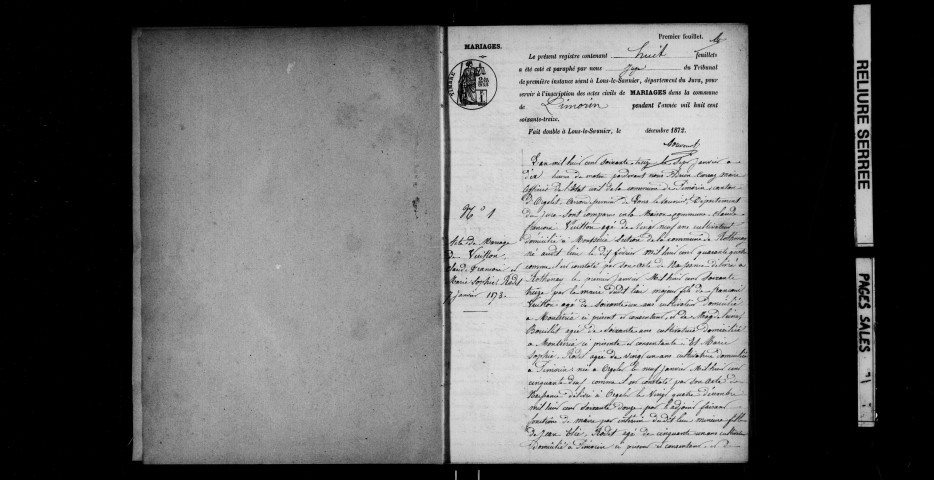 Premier feuillet.
MARIAGES.
Le présent registre contenant huit feuillets
a été coté et paraphé par nous Juge du Tribunal
de première instance séant à Lons-le-Saunier, département du Jura, pour
servir à l'inscription des actes civils de MARIAGES dans la commune
de Dimorin pendant l'année mil huit cent
soixante-treize.
Fait double à Lons-le-Saunier, le décembre 1872.
TIMBRE
N° 1
Acte de Mariage
De Vuillon
Claude François et
Marie Sophie Rodet
7 janvier 1873.
L'an mil huit cent soixante treize le sept janvier a
dix heures du matin pardevant nous maire
officier de l'état civil de la commune de Dimorin canton
D'Orgelet, arrondissement de Lons le Saunier, Département
du Jura sont comparus en la Maison commune Claude
François Vuillon agé de vingt neuf ans cultivateur
domicilié à section de la commune de Rothonay
né audit lieu le dix février mil huit cent quarante quatre
comme il est constaté par son acte de Naissance délivré à
Rothonay le premier janvier Mil huit cent soixante
treize par le maire dudit lieu majeur fils de françois
Vuillon agé de soixante un ans cultivateur domicilié
a ci présent et consentant, et de
Bouillet agée de soixante ans cultivatrice domiciliée
a ci présente et consentante Et Marie
Sophie Rodet agée de vingt un ans cultivatrice domiciliée
a Dimorin née a Orgelet le neuf janvier Mil huit cent
cinquante deux comme il est constaté par son acte de
Naissance délivré à Orgelet le vingt quatre décembre
mil huit cent soixante douze par l'adjoint faisant
fonction de maire par intérim dudit lieu mineure fille
de Jean Rodet agé de cinquante un ans cultivateur
Domicilié à Dimorin ci présent et consentant, et de
RELIURE SERREE
PAGES SALES